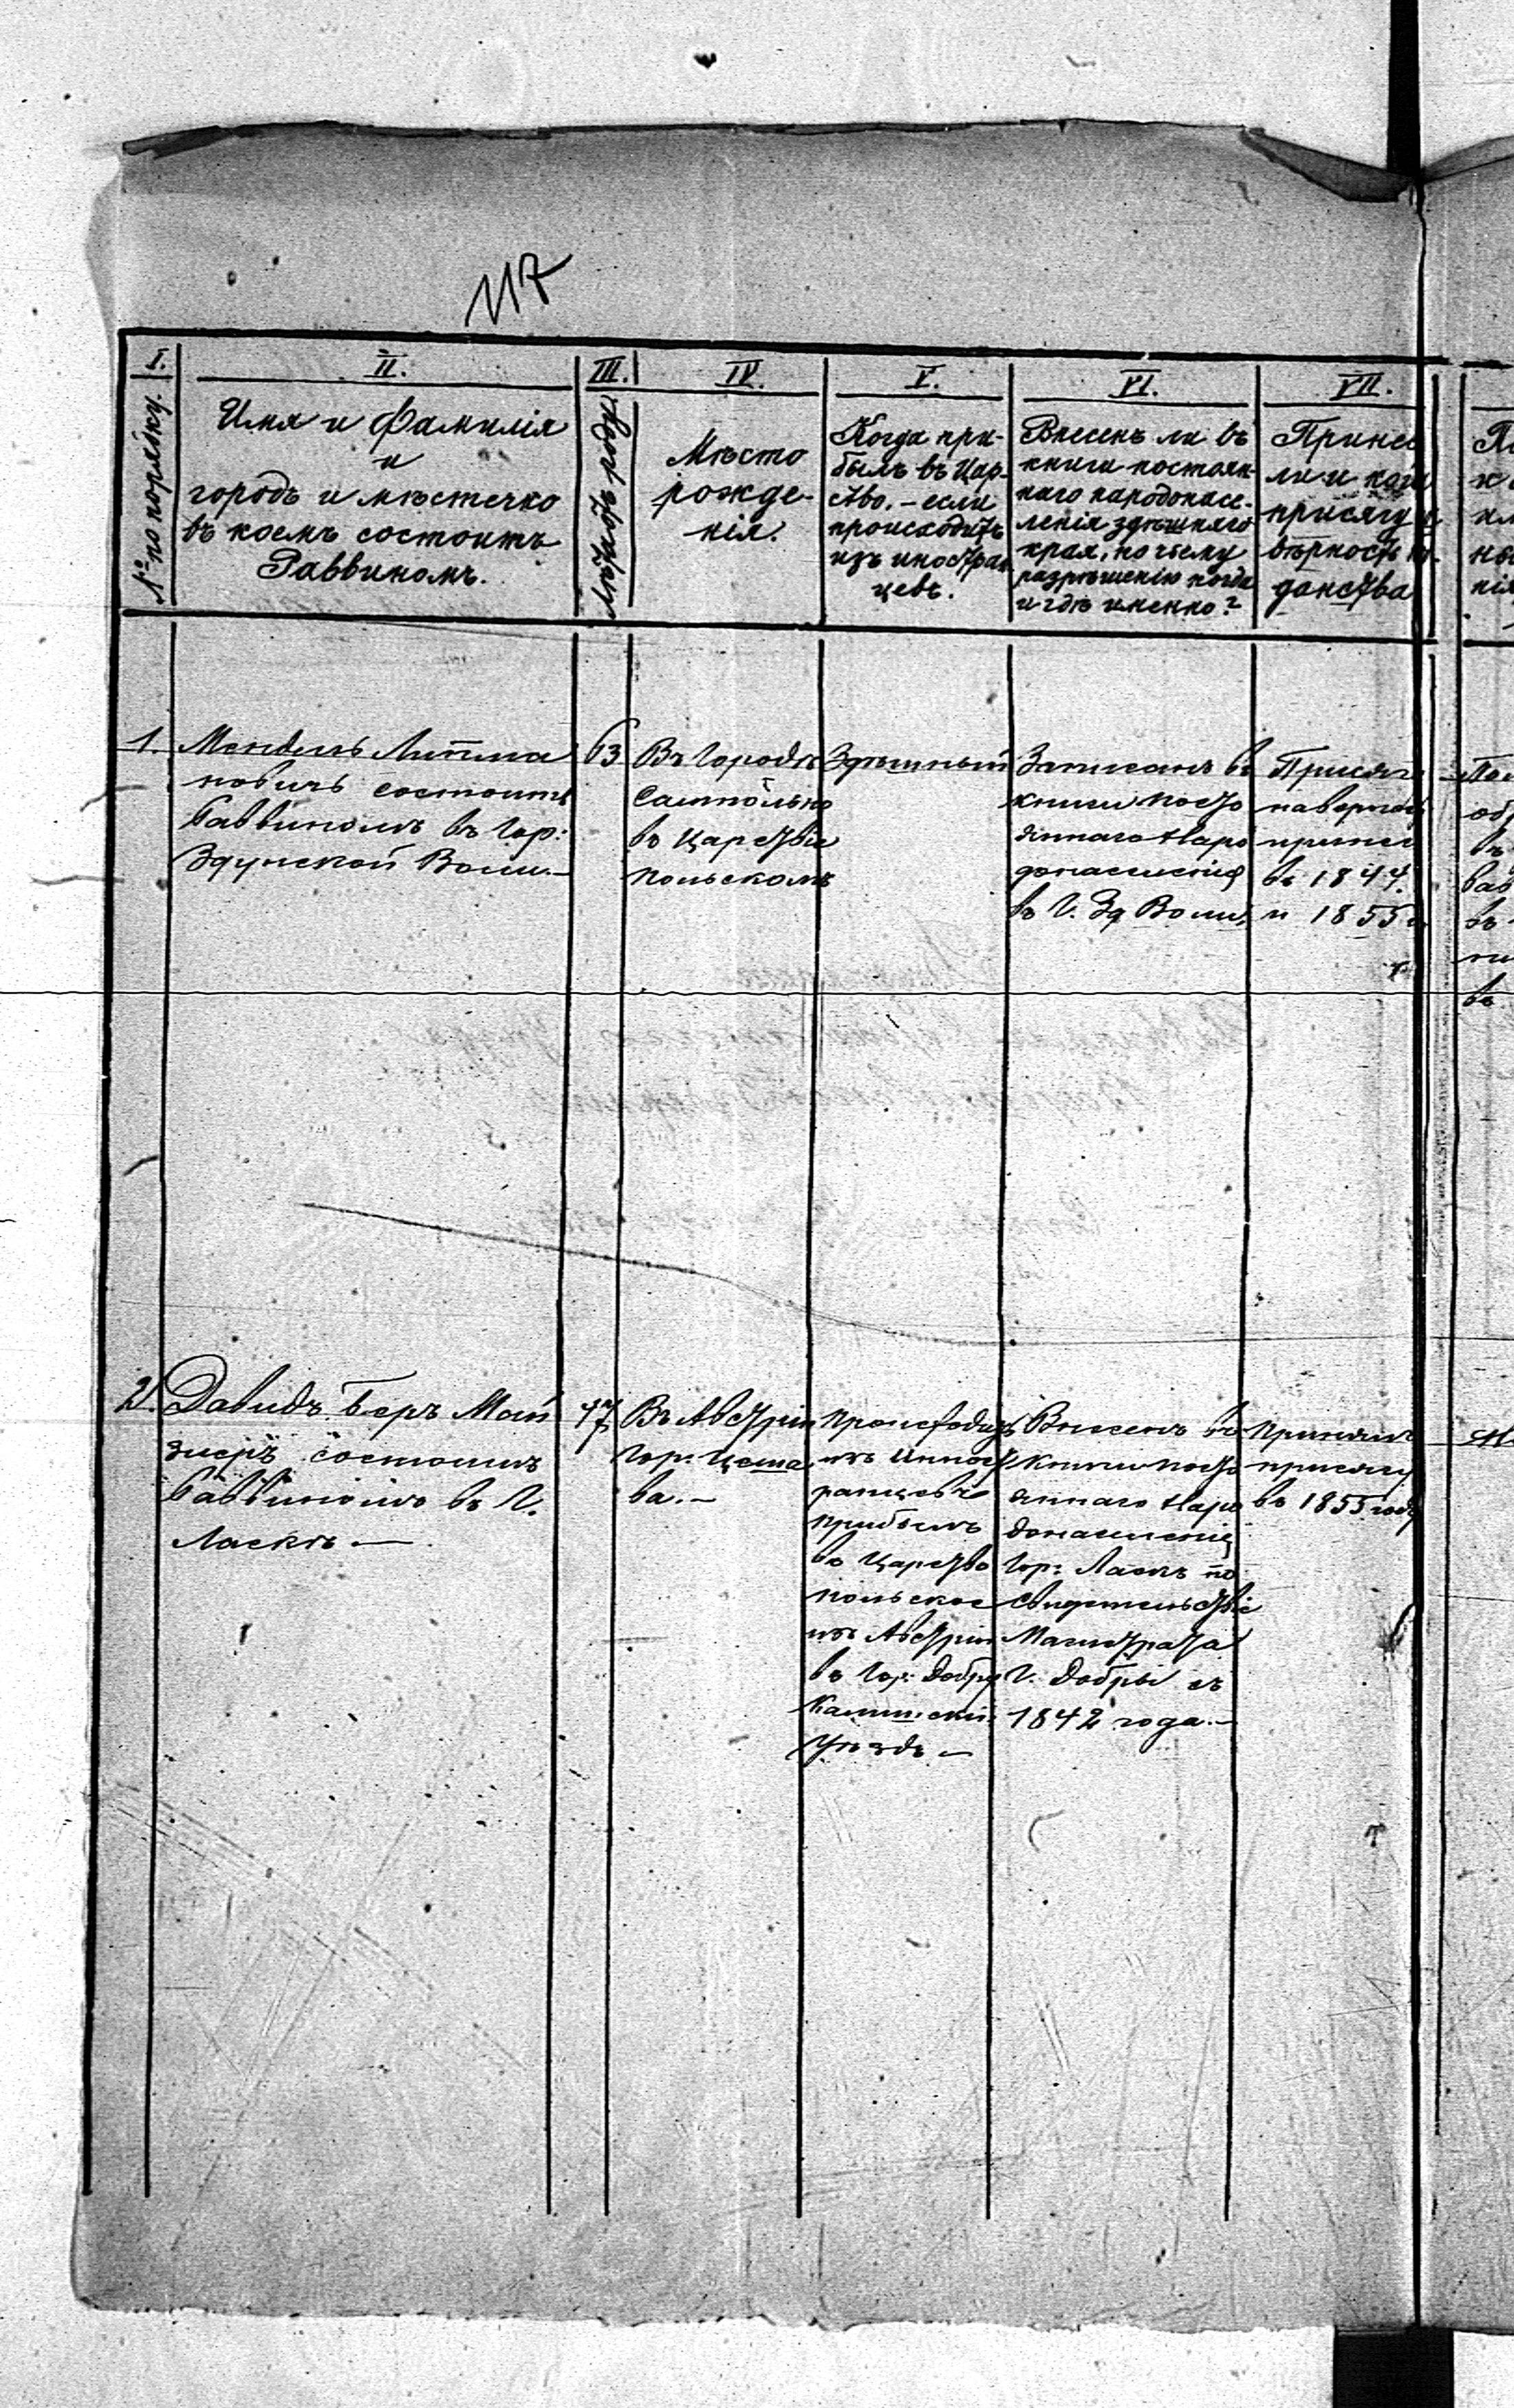 117
I.
№ по порядку.
II.
Имя и Фамилія
и
городъ и мѣстечко
въ коемъ состоитъ
Раввиномъ.
III.
IV.
Мѣсто
рожде-
нія.
V.
Когда при-
былъ въ Цар-
ство. – если
происходитъ
изъ иностран
цевъ.
VI.
Внесенъ ли въ
книги постоян-
наго народонасе-
ленія здѣшняго
края, по чьему
разрѣшенію когда
и гдѣ именно?
VII.
Принес
ли и когда
присягу
вѣрность
данства
1.
Мендель Литма
новичъ состоитъ
Раввиномъ въ Гор:
Здунской Воли. –
63
Въ Городѣ
Самполько
въ Царствіе
Польскомъ
Здѣшный
Записанъ въ
книги посто
яннаго Наро
донаселенія
въ Г. Зд Воли.
Присягу
на верность
принел
въ 1844.
и 1855 г
2.
Давидъ Беръ Май
зиеръ состоитъ
Раввиномъ въ Г.
Ласкѣ –
47
Въ Австріи
Гор. Цеша
ва. –
Происходитъ
изъ Инност
ранцевъ
прибылъ
въ Царство
Польское
изъ Австріи
въ Гор: Добру
Калишскій
Уѣздъ –
Внесенъ въ
Книги посто
яннаго Наро
донаселенія
Гор: Ласкъ по
Свидетельствіе
Магистрата
Г. Добры съ
1842 года. –
Принялъ
присягу
въ 1855 году